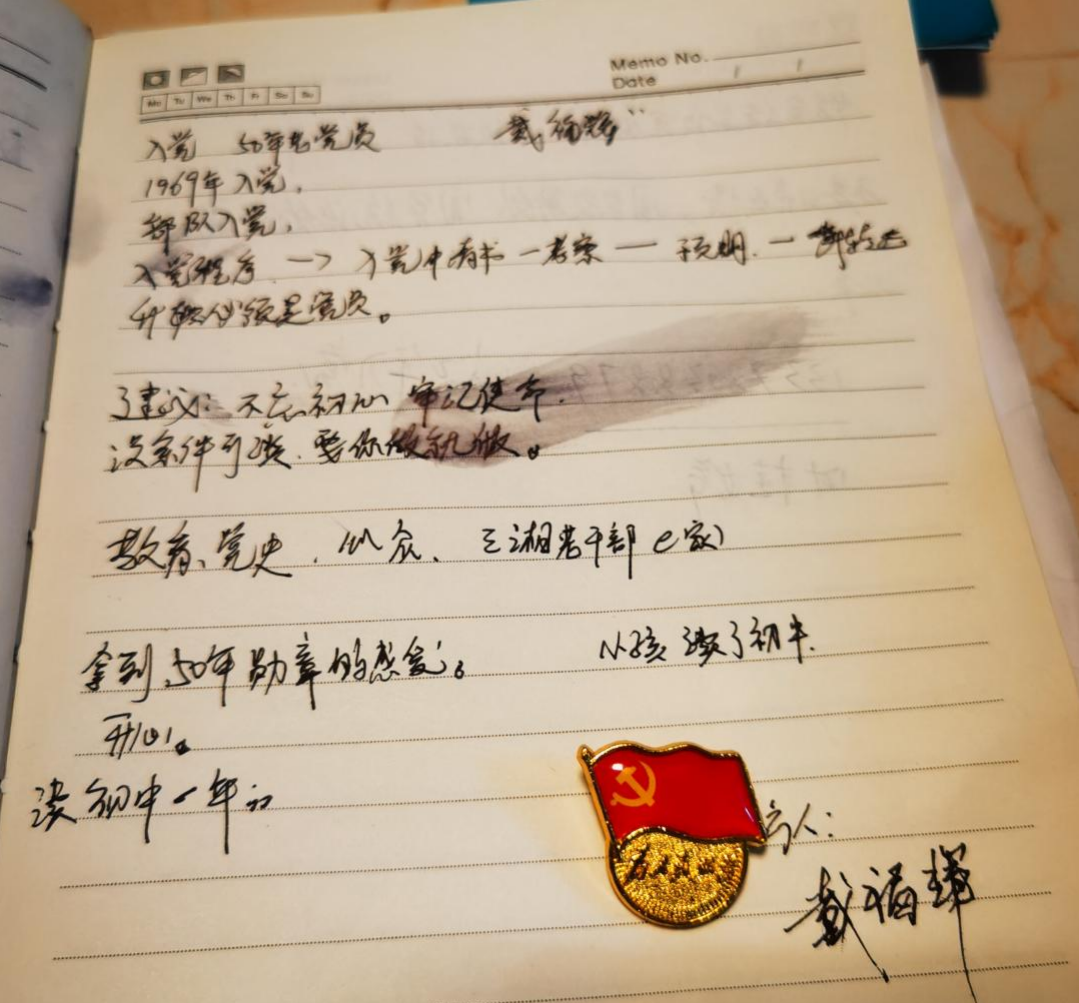 Memo No.
Date / /
Mo Tu We Th Fr Sa Su
入党 50年老党员 戴福辉
1969年入党,
部队入党,
入党程序 —> 入党申请书 — 考察 — 预期. —
升 必须是党员。
建议: 不忘初心 牢记使命.
没条件可谈. 要你做就做。
教育、党史. 三湘老干部e家
拿到50年勋章的感受: 。
小孩 读了初中.
开心。
读初中一年
人:
戴福辉